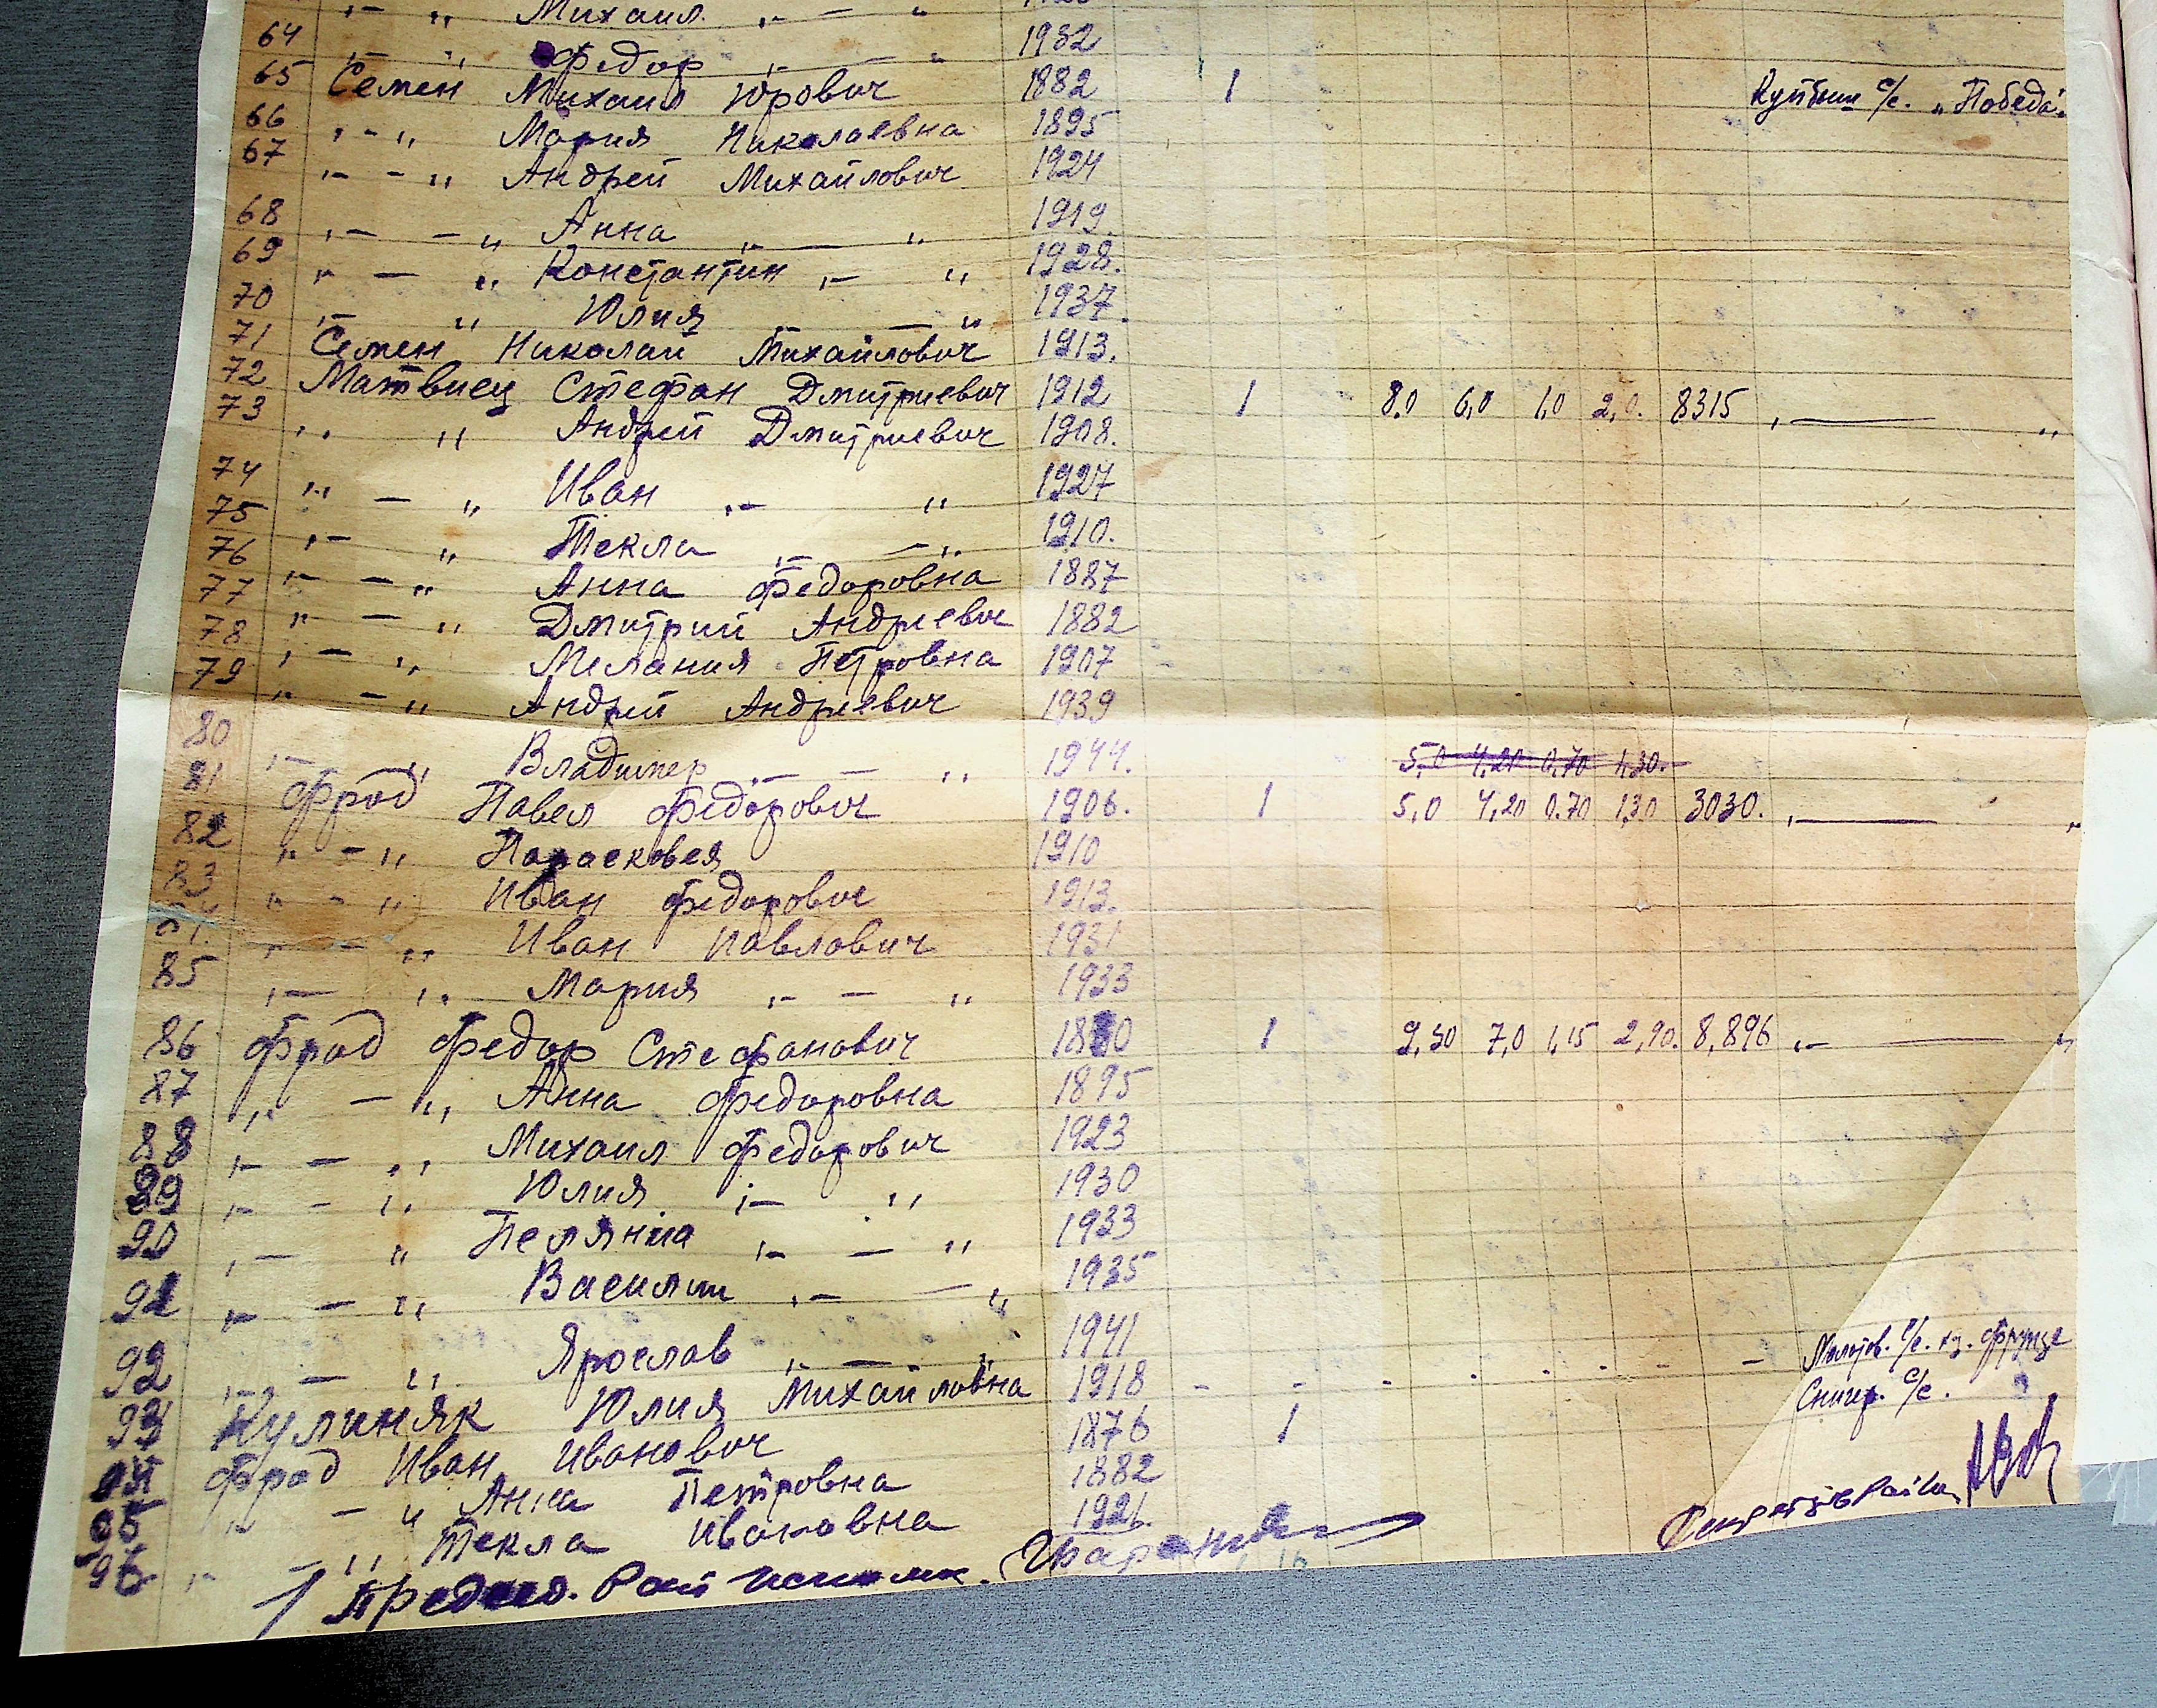 ,,- ,, Михаил ,, - ,,
64 ,,- ,, Федор ,,- ,, 1932
65 Семен Михаил Юрович 1882 1 с/с. „Победа".
66 ,,- ,, Мария Николаевна 1895
67 ,,- - ,, Андрей Михайлович 1924
68 ,,- - ,, Анна ,, - ,, 1919.
69 ,,- ,, Константин ,,- ,, 1928.
70 ,,- ,, Юлия - ,, 1937.
71 Семен Николай Михайлович 1913.
72 Матвиец Стефан Дмитриевич 1912 1 8.0 6,0 1,0 2,0. 8315 ,,- ,,
73 ,, ,, Андрей Дмитриевич 1908.
74 ,,- ,, Иван ,,- ,, 1927
75 ,,- ,, Текла ,,- - ,, 1910.
76 ,,- - ,, Анна Федоровна 1887
77 ,,- - ,, Дмитрий Андриевич 1882
78 ,,- ,, Мелания Петровна 1907
79 ,,- - ,, Андрей Андриевич 1939
80 ,,- ,, Владимер ,,- - ,, 1944. 5,0 4,20 0,70 1,30.
81 Фрод Павел Федорович 1906. 1 5,0 4,20 0.70 1,30 3030. ,,- ,,
82 ,, - ,, Парасковея 1910
83 ,, - ,, Иван Федорович 1913.
,, - ,, Иван Павлович 1931
85 ,,- ,, Мария ,, - ,, 1933
86 Фрод Федор Стефанович 1880 1 9,30 7,0 1,15 2,90. 8,896 ,,- ,,
87 ,, - ,, Анна Федоровна 1895
88 ,,- - ,, Михаил Федорович 1923
89 ,,- - ,, Юлия ,,- ,, 1930
90 ,,- ,, Пелянiя ,,- - ,, 1933
91 ,,- - ,, Василий ,,- - ,, 1935
92 ,,- - ,, Ярослав ,,- ,, 1941
93 Кулиняк Юлия Михайловна 1918 - - - - - - - с/с. Фрунзе
94 Фрод Иван Иванович 1876 1 Снигир. с/с.
95 ,,- - ,, Анна Петровна 1882
96 ,,- - ,, Текла Ивановна 1926.
Председ. Рай исполк. Секретарь